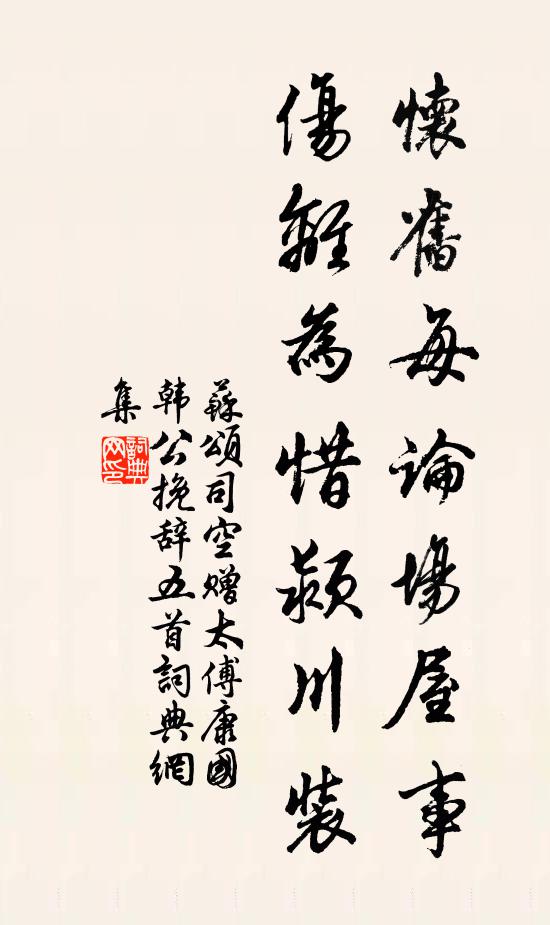 懷舊每論場屋事
傷離為惜潁川裝
蘇頌司空贈太傅康國
韩公挽辞五首詞典網
集
詞典网印